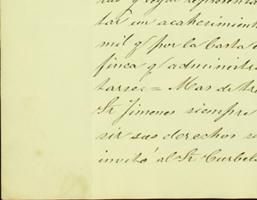 tar un acahecimient
mil q/ por la Casta
finca q/ administr
tarse = Mas de tre
Sr Jimenes siempre
sir sus derechos s
invitó al Sr Curbel